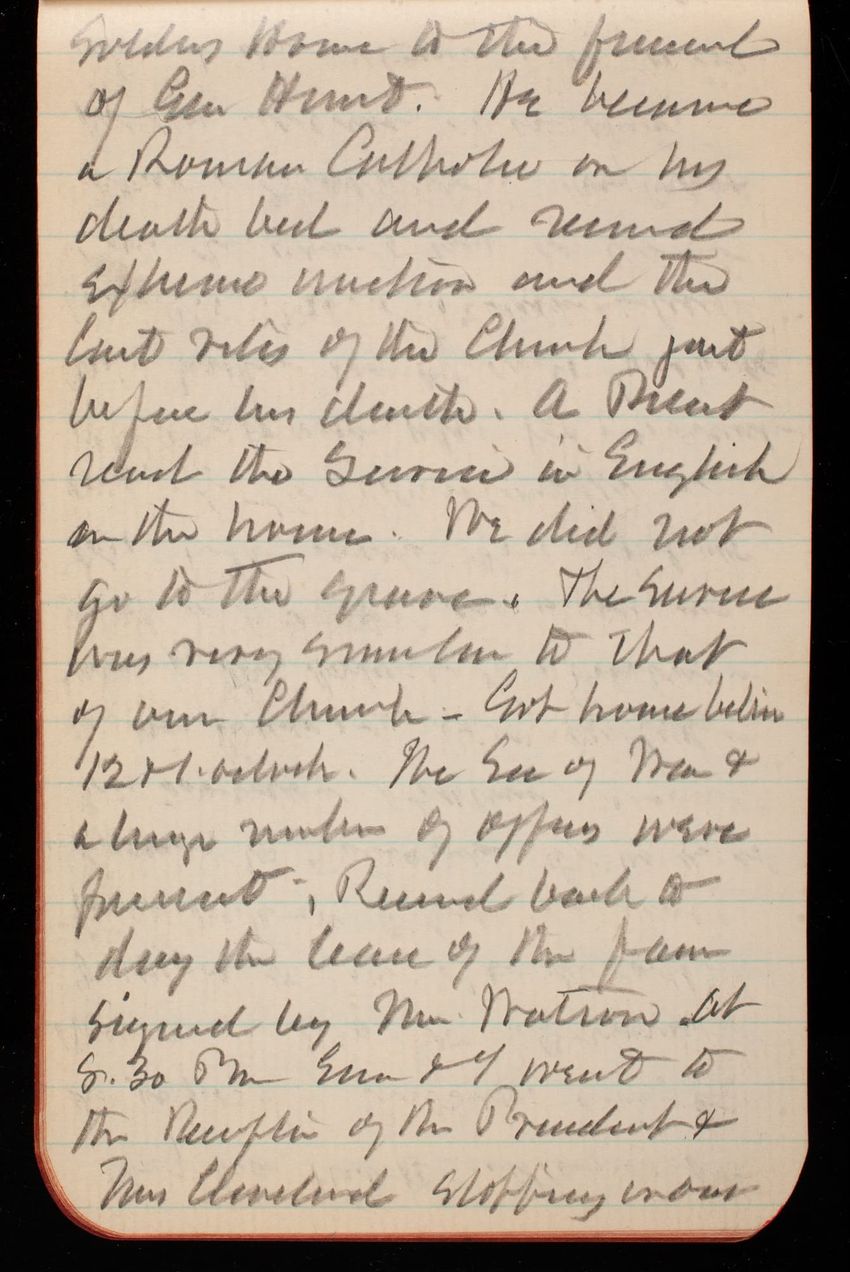 Soldiers Home to the funeral
of Gen Hunt. He became
a Roman Catholic on his
death bed and received
extreme unction and the
last rites of the Church just
before his death. A Priest
read the Service in English
in the house. We did not
go to the grave. The Service
was very similar to that
of our Church - Got home between
12 & 1. oclock. The Sec of War &
a large number of officers were
present, Received back to
day the lease of the farm
signed by Mr. Watson. At
8.30 PM & I went to
the Reception of the President &
Mrs Cleveland stopping